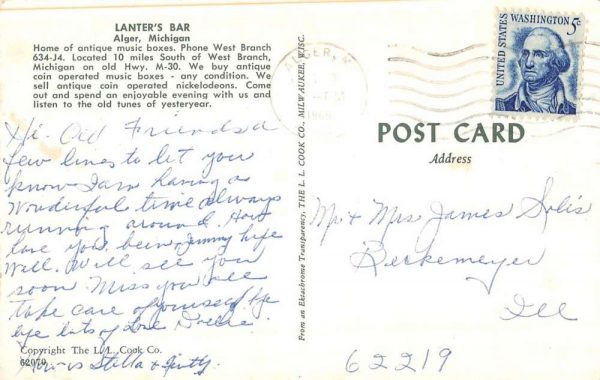 LANTER'S BAR
Alger, Michigan
Home of antique music boxes. Phone West Branch
634-J4. Located 10 miles South of West Branch,
Michigan on old Hwy. M-30. We buy antique
coin operated music boxes - any condition. We
sell antique coin operated nickelodeons. Come
out and spend an enjoyable evening with us and
listen to the old tunes of yesteryear.
Hi Old Friends a
few lines to let you
know I am having a
wonderful time always
running around. How
have you been, Jimmy hope
well. Will see you
soon. Miss you
take care of yourself. bye
bye lots of love Dollie.
Copyright The L. L. Cook Co.
62079
Stella &
From an Ektachrome Transparency, THE L. L. COOK CO., MILWAUKEE, WISC.
ALGER, M
1968
UNITED STATES
WASHINGTON 5c
POST CARD
Address
Mr & Mrs James Solis
Beckemeyer
Ill
62219